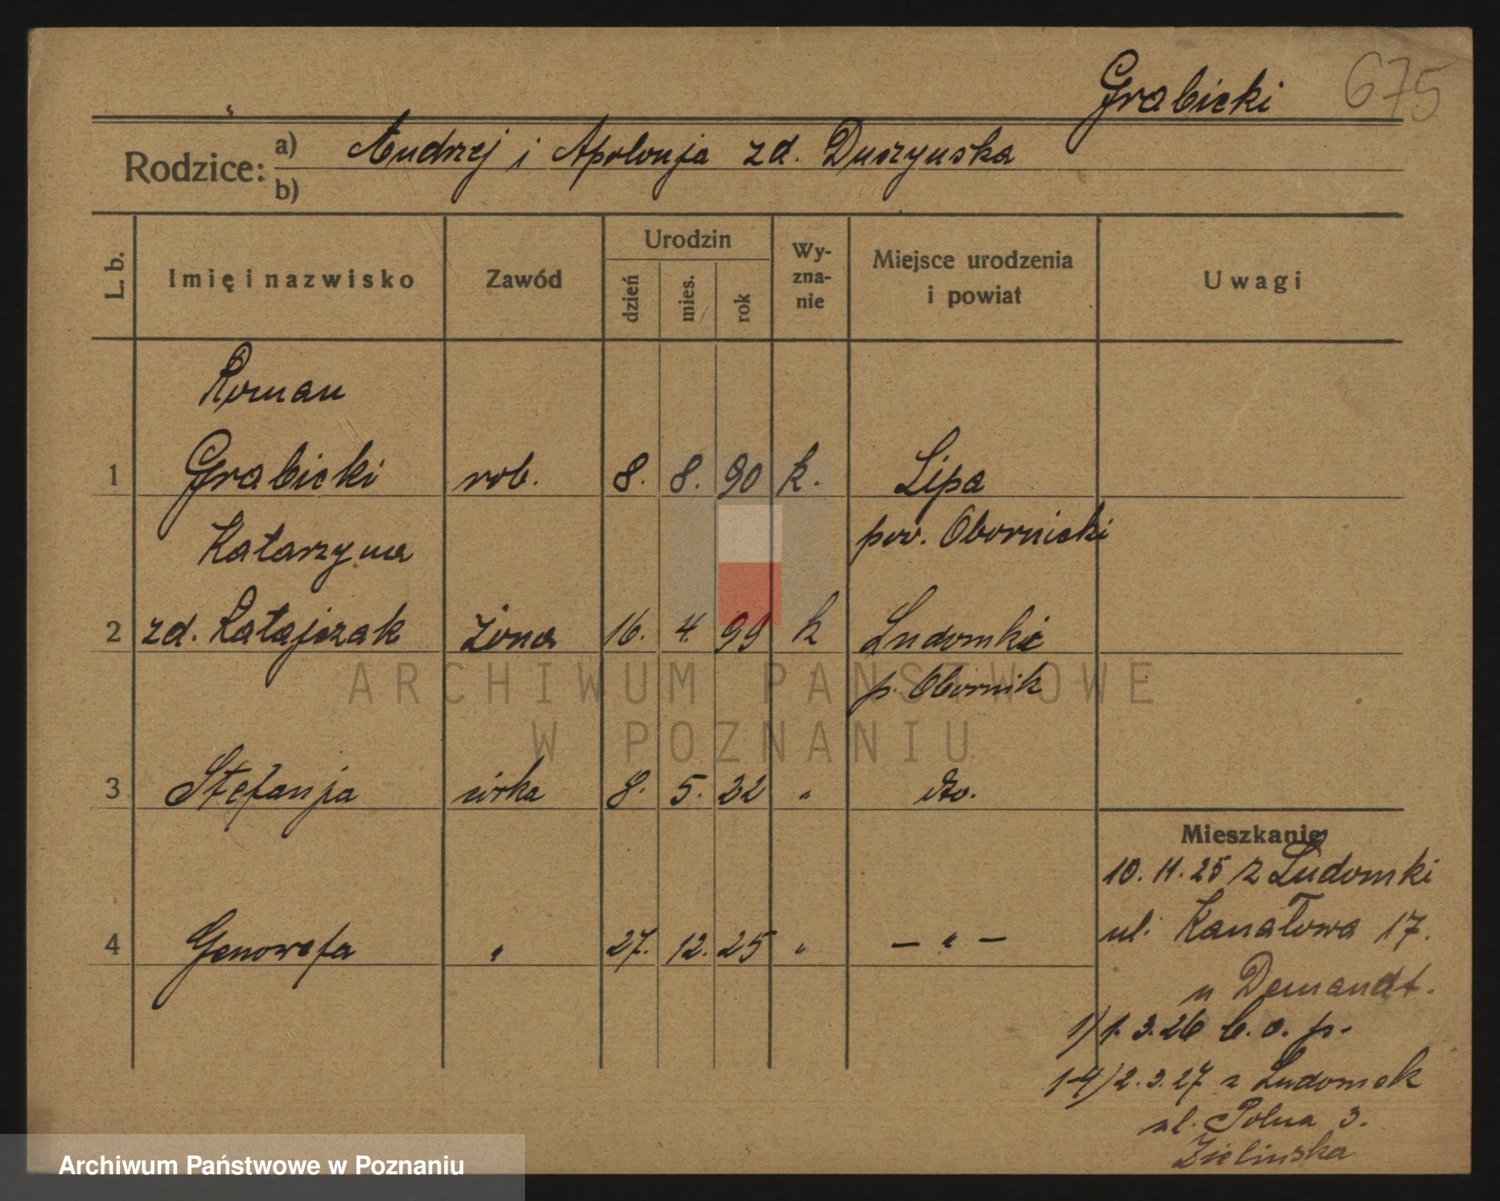 Grabicki 675
Rodzice: a) Andrzej i Apolonja zd. Duszynska
b)
L. b. Imię i nazwisko Zawód Urodzin dzień mies. rok Wy-zna-nie Miejsce urodzenia i powiat Uwagi
Roman
1 Grabicki rob. 8. 8. 90 k. Lipa
Katarzyna pow. Obornicki
2 zd. Ratajczak żona 16. 4. 99 k Ludomkie
p. Obornik
3 Stefanja córka 8. 5. 22 " dto.
4 Genowefa " 27. 12. 25 " — " —
Mieszkanie
10. 11. 25 z Ludomki
ul. Kanałowa 17.
u Demandt.
1/ 1. 3. 26 b. o. p.
1-4/ 2. 3. 27 z Ludomek
ul. Polna 3.
Zielinska
ARCHIWUM PAŃSTWOWE
W POZNANIU
Archiwum Państwowe w Poznaniu